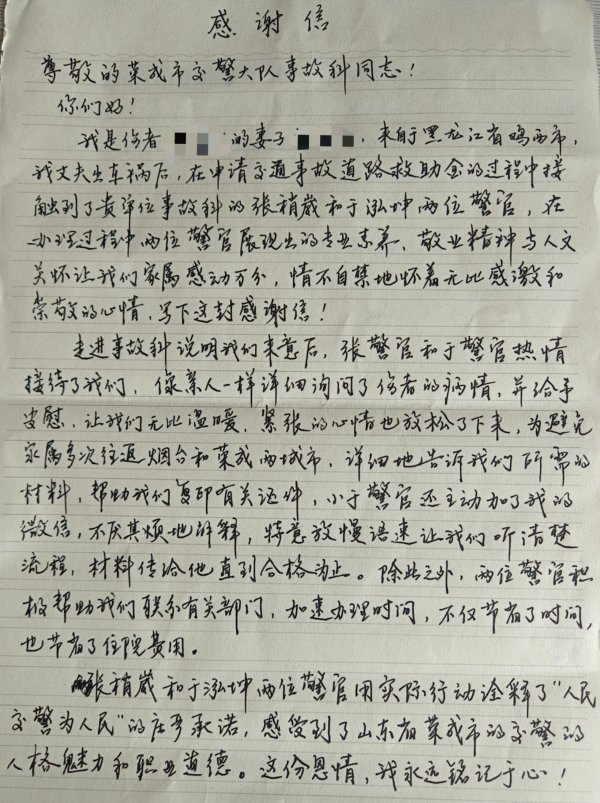 感谢信
尊敬的荣成市交警大队事故科同志！
你们好！
我是伤者的妻子，来自于黑龙江省鸡西市，
我丈夫出车祸后，在申请交通事故道路救助金的过程中接
触到了贵单位事故科的张稍葳和于泓坤两位警官，在
办理过程中两位警官展现出的专业素养、敬业精神与人文
关怀让我们家属感动万分，情不自禁地怀着无比感激和
崇敬的心情，写下这封感谢信！
走进事故科说明我们来意后，张警官和于警官热情
接待了我们，像亲人一样详细询问了伤者的病情，并给予
安慰，让我们无比温暖，紧张的心情也放松了下来，为避免
家属多次往返烟台和荣成两城市，详细地告诉我们所需的
材料，帮助我们复印有关证件，小于警官还主动加了我的
微信，不厌其烦地解释，特意放慢语速让我们听清楚
流程，材料传给他直到合格为止。除此之外，两位警官积
极帮助我们联系有关部门，加速办理时间，不仅节省了时间，
也节省了住院费用。
张稍葳和于泓坤两位警官用实际行动诠释了“人民
交警为人民”的庄严承诺，感受到了山东省荣成市的交警的
人格魅力和职业道德。这份恩情，我永远铭记于心！